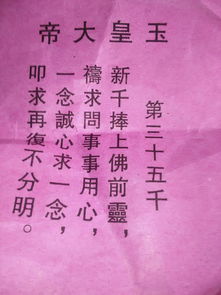 玉皇大帝
第三十五千
新千捧上佛前靈，
禱求問事事用心，
一念誠心求一念，
叩求再復不分明。